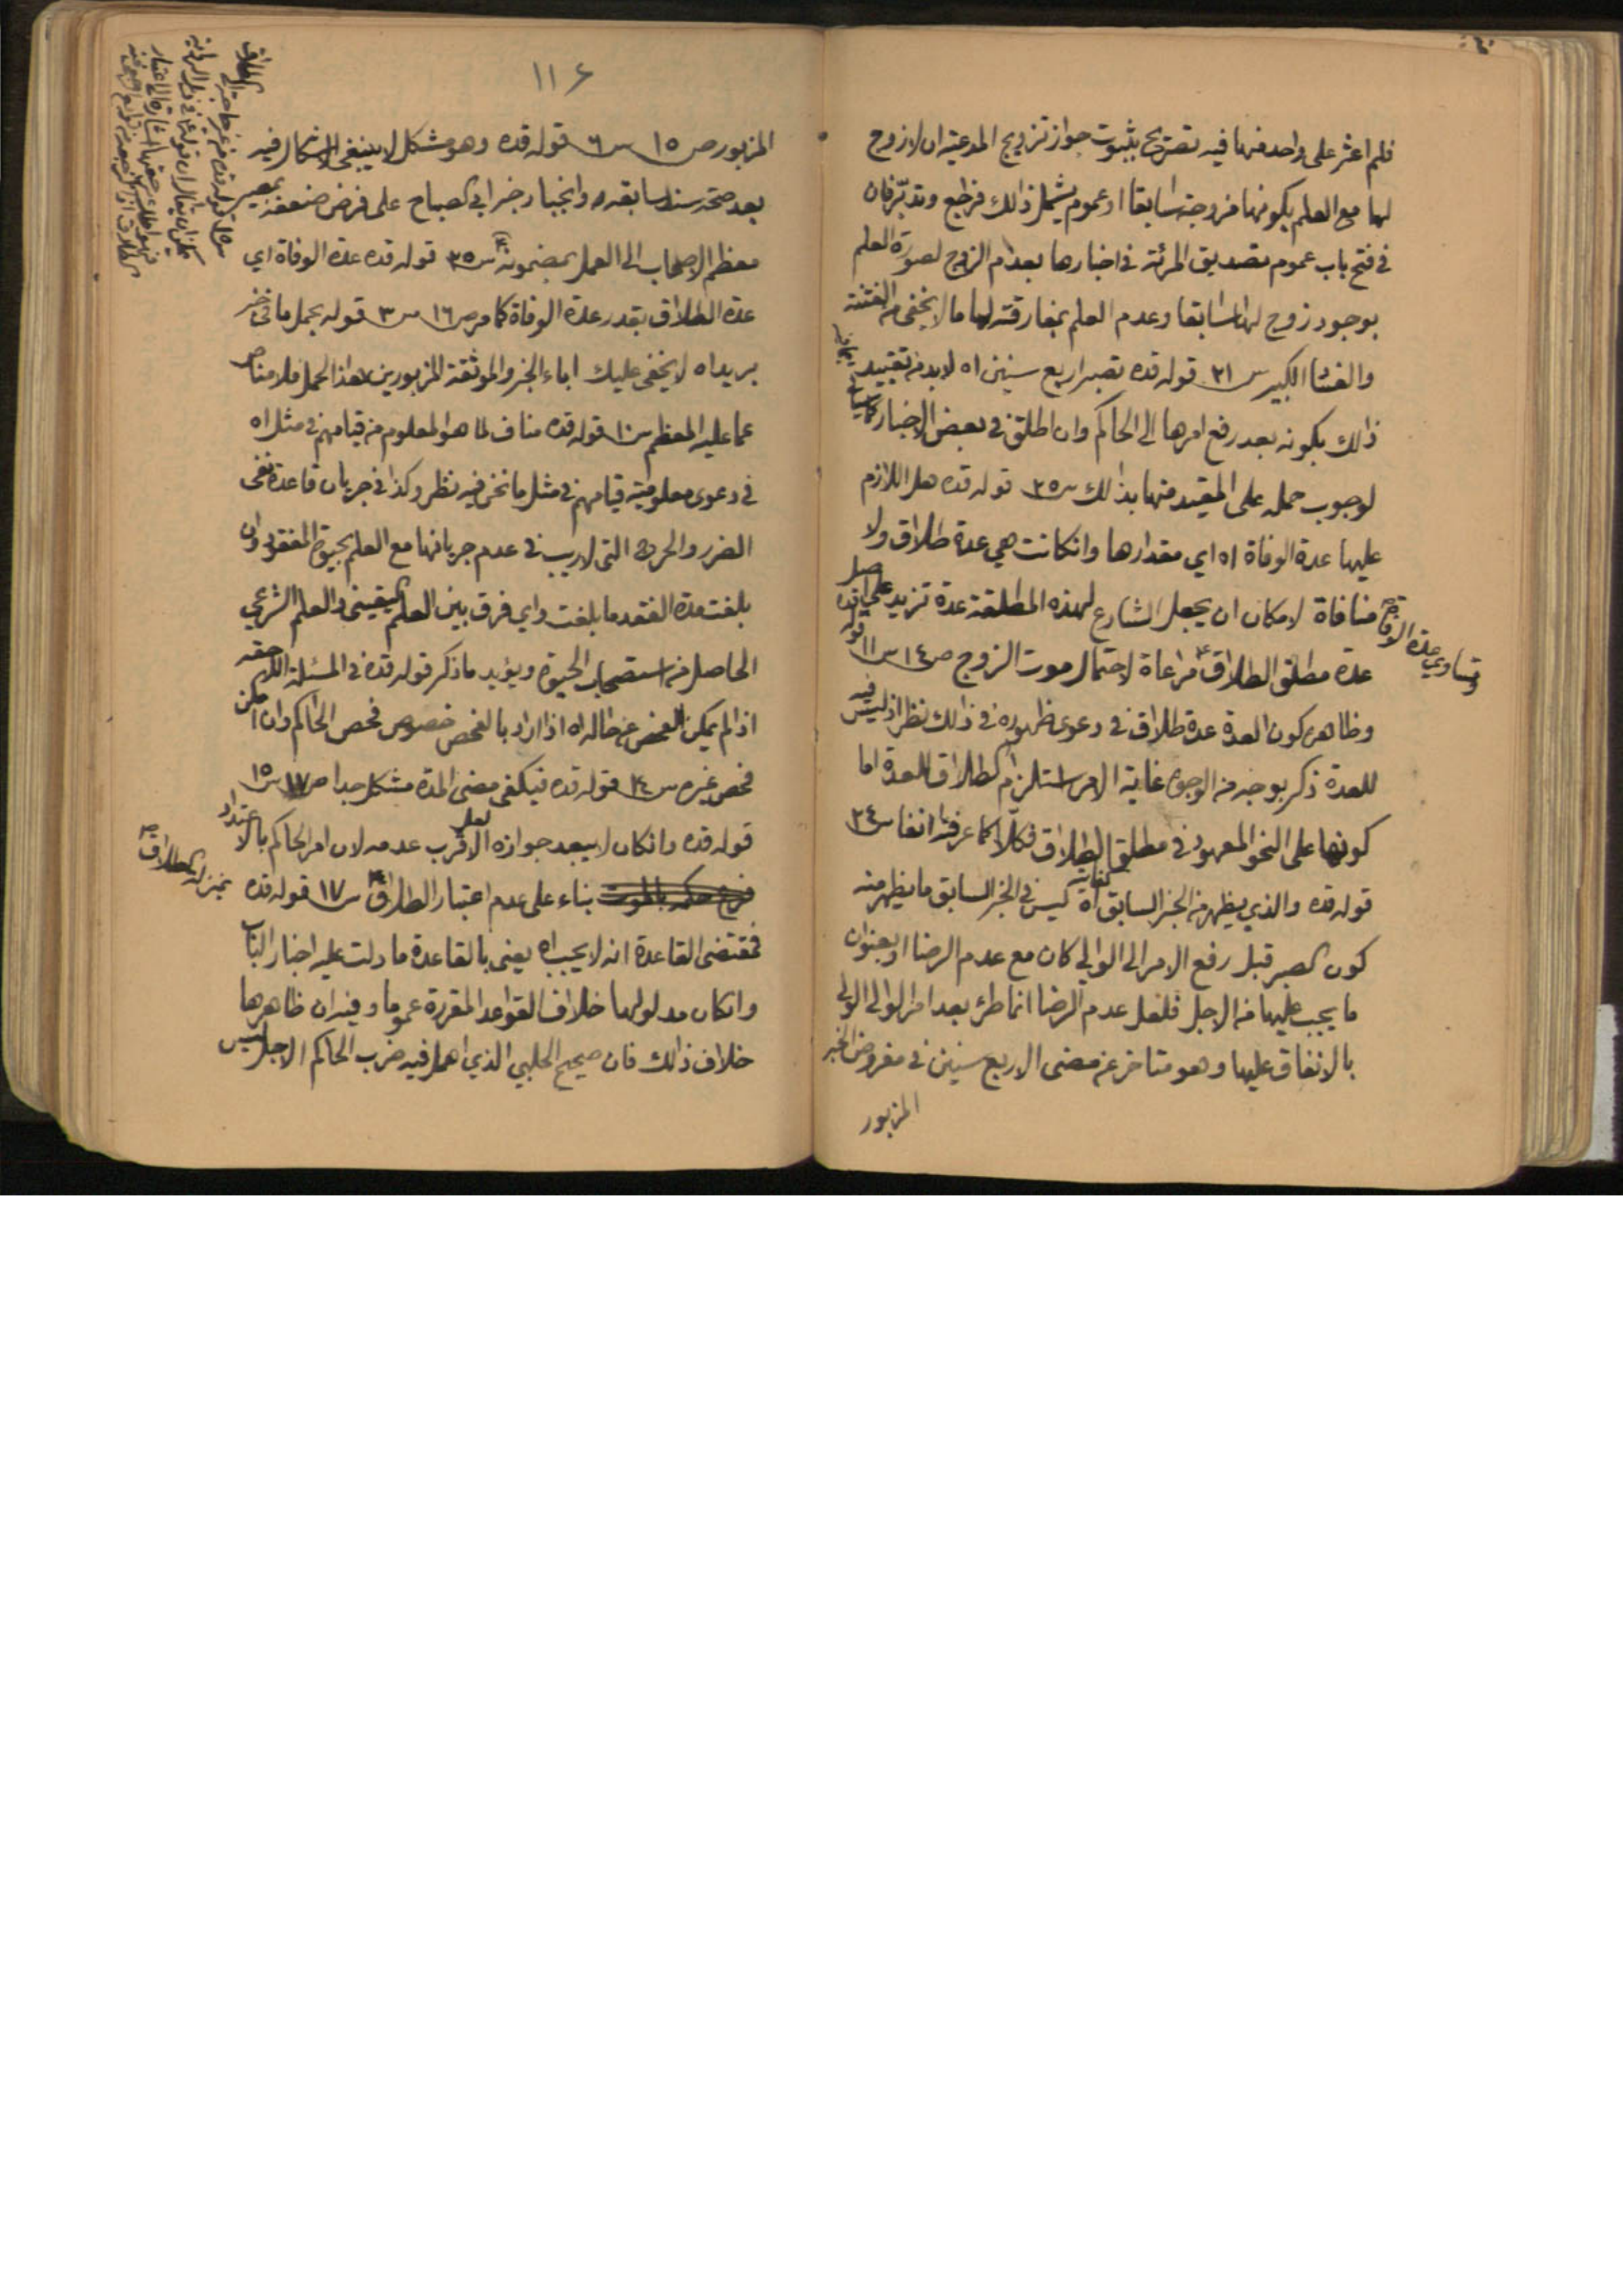 فلم اعثر على واحد منها فيه تصريح بثبوت جواز تزويج المدعية ان لا زوج
لها مع العلم بكونها مزوجة سابقا او عموم يشمل ذلك فراجع وتدبّر فان
في فتح باب عموم تصديق المرئة في اخبارها بعدم الزوج لصورة العلم
بوجود زوج لها سابقا وعدم العلم بمفارقته لها ما لا يخفى من الفتنة
والفساد الكبير س ٢١ قوله قده تصبر اربع سنين اه لا بد من تقييد
ذلك بكونه بعد رفع امرها الى الحاكم وان اطلق في بعض الاخبار
لوجوب حمله على المقيد منها بذلك س ٢٥ قوله قده هل اللازم
عليها عدة الوفاة اه اي مقدارها وانكانت هي عدة طلاق ولا
منافاة لامكان ان يجعل الشارع لهذه المطلقة عدة تزيد على اصل
وتساوي عدة الوفاة
عدة مطلق الطلاق مراعاة لاحتمال موت الزوج ص ١٤ س ١١ قوله قده
وظاهره كون العدة عدة طلاق في دعوى ظهوره في ذلك نظر اذ ليس فيه
للعدة ذكر بوجه من الوجوه غاية الامر استلزام الطلاق للعدة اما
كونها على النحو المعهود في مطلق الطلاق فكلّا كما عرفته انفا س ٢٤
قوله قده والذي يظهر من الخبر السابق كفاية اه ليس في الخبر السابق ما يظهر منه
كون الصبر قبل رفع الامر الى الوالي كان مع عدم الرضا او بعنوان
ما يجب عليها من الاجل فلعل عدم الرضا انما طرء بعد امر الوالي الولي
بالانفاق عليها وهو متاخر عن مضى الاربع سنين في مفروض الخبر
المزبور
١١٤
المزبور ص ١٥ س ٦ قوله قده وهو مشكل لا ينبغي الاشكال فيه
بعد صحة سند سابقه وانجبار خبر ابي الصباح على فرض ضعفه بمصير
معظم الاصحاب الى العمل بمضمونه س ٢٥ قوله قده عدة الوفاة اي
عدة الطلاق بقدر عدة الوفاة كما مر ص ١٦ س ٣ قوله يحمل ما في خبر
بريد اه لا يخفى عليك اباء الخبر والموثقة المزبورين لهذا الحمل فلا مناص
عما عليه المعظم س ١٠ قوله قده مناف لما هو المعلوم من قيامهم في مثل اه
في دعوى معلومية قيامهم في مثل ما نحن فيه نظر وكذا في جريان قاعدة نفى
الضرر والحرج التي لا ريب في عدم جريانها مع العلم بحيوة المفقود وان
بلغت مدة الفقد ما بلغت واي فرق بين العلم اليقيني والعلم الشرعي
الحاصل من استصحاب الحيوة ويؤيد ما ذكر قوله قده في المسئلة اللاحقة
اذا لم يمكن الفحص عن حاله اه اذا اراد بالفحص خصوص فحص الحاكم وان امكن
فحص غيره س ٢٤ قوله قده فيكفى مضى المدة مشكل جدا ص ١٧ س ١٥
قوله قده وانكان لا يبعد جوازه لعل الاقرب عدمه لان امر الحاكم بالاعتداد
بمنزلة الطلاق
بناء على عدم اعتبار الطلاق س ١٧ قوله قده
فمقتضى القاعدة انه لا يجب اه يعنى بالقاعدة ما دلت عليه اخبار الباب
وانكان مدلولها خلاف القواعد المقررة عموما وفيه ان ظاهرها
خلاف ذلك فان صحيح الحلبي الذي اهمل فيه ضرب الحاكم الاجل ليس